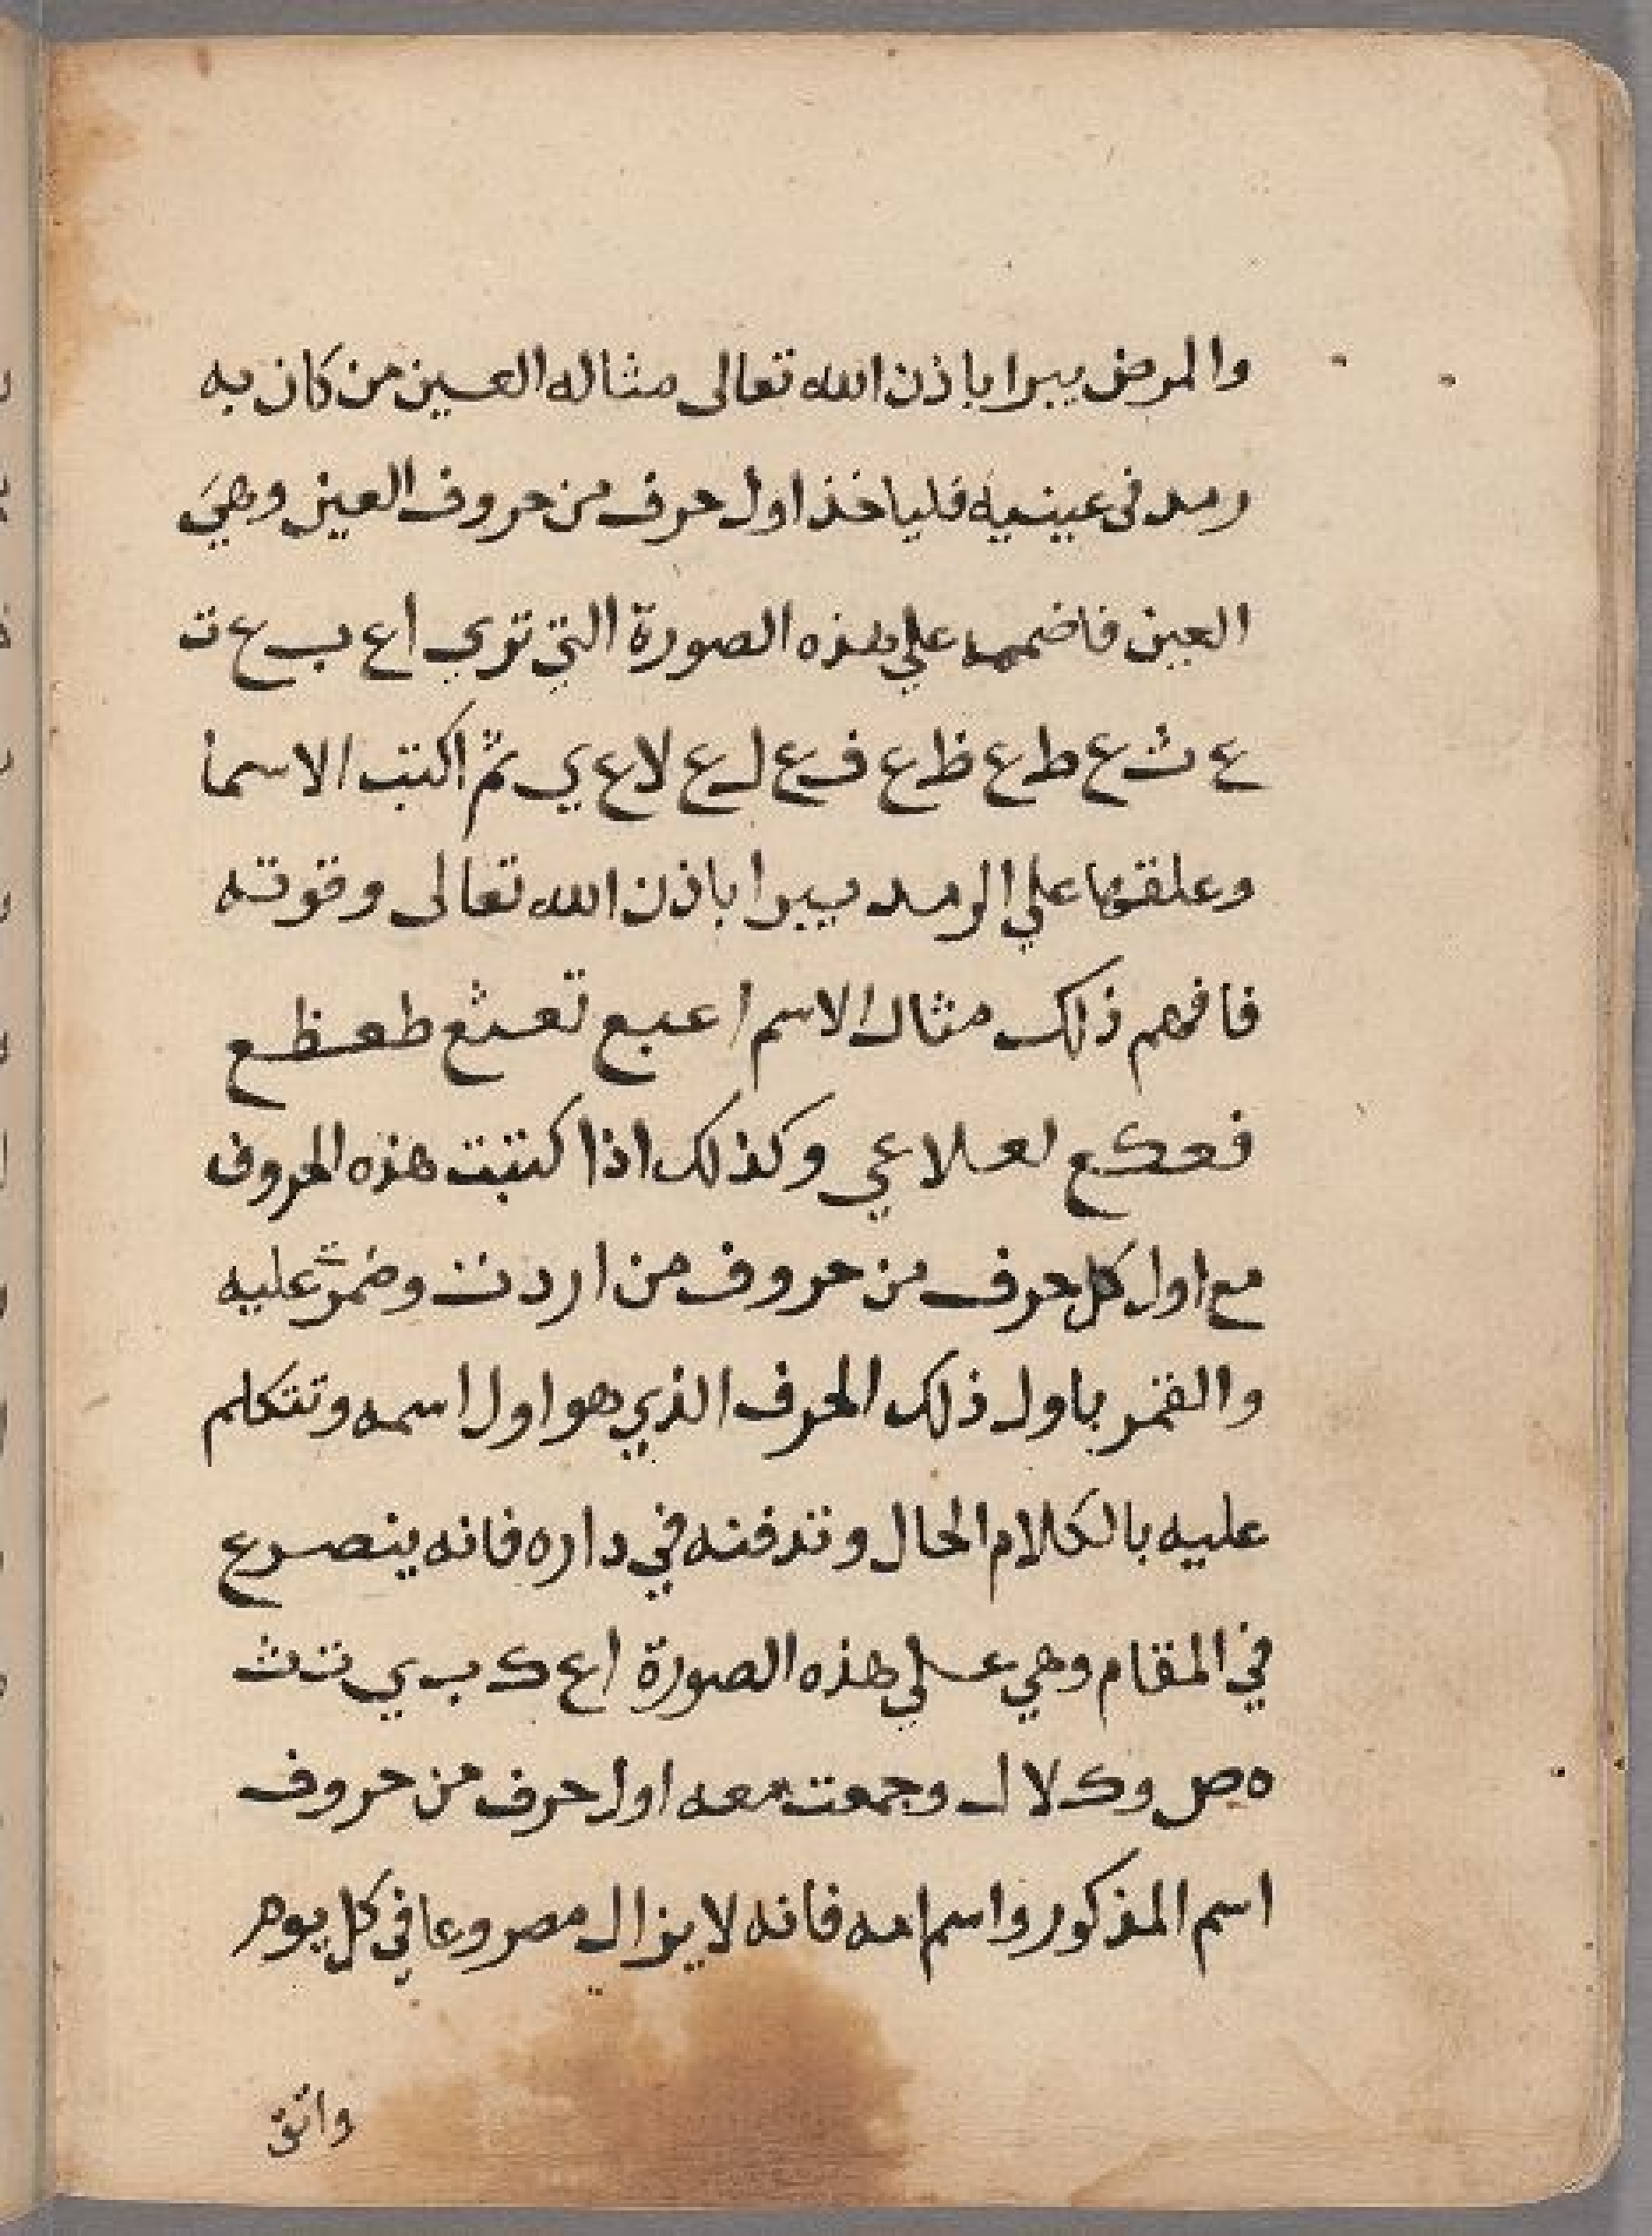 والمرض يبرا باذن الله تعالى مثاله العين من كان به
رمد فى عينيه فلياخذ اول حرف من حروف العين وهي
العين فاضمها علي هذه الصورة التي تري ا ع ب ع ت
ع ث ع ط ع ظ ع ف ع ل ع لا ع ي ثم اكتب الاسما
وعلقها علي الرمد يبرا باذن الله تعالى وقوته
فافهم ذلك مثال الاسم اعبع تعثع طعظع
فعكع لعلاعي وكذلك اذا كتبت هذه الحروف
مع اول كل حرف من حروف من اردت عليه
والقمر باول ذلك الحرف الذي هو اول اسمه وتتكلم
عليه بالكلام الحال وتدفنه في داره فانه ينصرع
في المقام وهي علي هذه الصورة ا ع ك ب ي ت ث
ه ص و ك لا ل وجمعت معه اول حرف من حروف
اسم المذكور واسم امه فانه لا يزال مصروعا في كل يوم
واتق